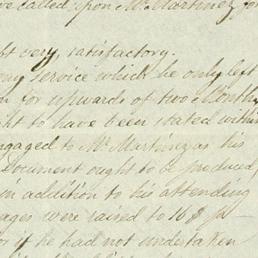 called upon Mr Martinez for
very satisfactory.
service which he only left
for upwards of two Months
ght to have been stated within
engaged to Mr Martinez as his
Document ought to be produced,
in addition to his attending
ages were raised to 16$ p
or if he had not undertaken